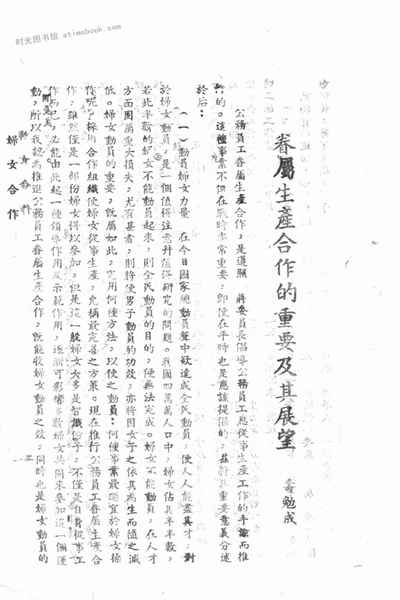 时光图书馆 atimebook.com
眷屬生產合作的重要及其展望
壽勉成
公務員工眷屬生產合作,是遵照 蔣委員長倡導公務員工應從事生產工作的手諭而推
行的。這種事業不但在戰時非常重要,即使在平時也是應該提倡的,茲將其重要意義分述
於后:
(一)動員婦女力量 在今日國家總動員聲中欲達成全民動員,使人人能盡其才,對
於婦女動員,是一個值得注意并值得研究的問題。我國四萬萬人口中,婦女佔其半數,
若此半數的婦女不能動員起來,則全民動員的目的,便無法完成。婦女不能動員,在人才
方面固屬重大損失,尤有甚者,則將使男子動員的功效,亦將因女子之依其為生而隨之減
低。婦女動員的重要,既屬如此,究用何種方法,以使之動員;何種事業最適宜於婦女操
作呢?採用合作組織使婦女從事生產,允稱最完善之方策。現在推行公務員工眷屬生產合
作,雖然僅是一部份婦女得以參加,但是這一般婦女大多是智識份子,不僅是自身從事工
作而已,必能由此起一種領導作用及示範作用,逐漸可影響多數婦女共同來參加這一個運
動,所以我認為推進公務員工眷屬生產合作,既能收婦女動員之效,同時也是婦女動員的
婦女合作